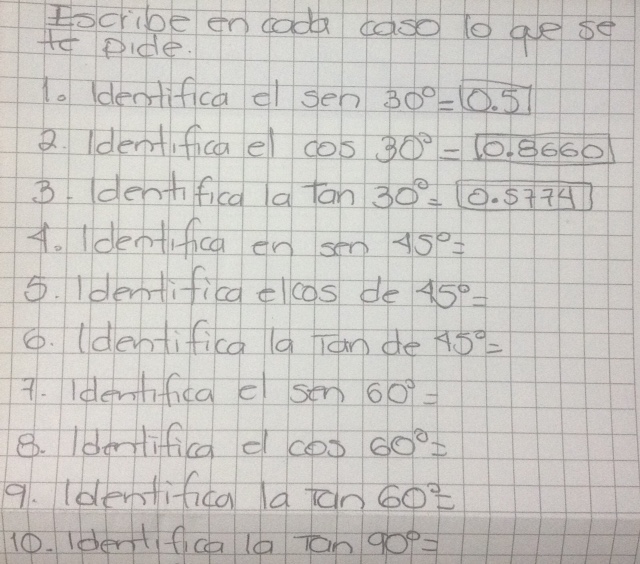 Escribe en cada caso lo que se
te pide.
1. Identifica el sen 30º= 0.5
2. Identifica el cos 30º= 0.8660
3. Identifica la Tan 30º= 0.5774
4. Identifica en sen 45º=
5. Identifica el cos de 45º=
6. Identifica la Tan de 45º=
7. Identifica el sen 60º=
8. Identifica el cos 60º=
9. Identifica la Tan 60º=
10. Identifica la Tan 90º=